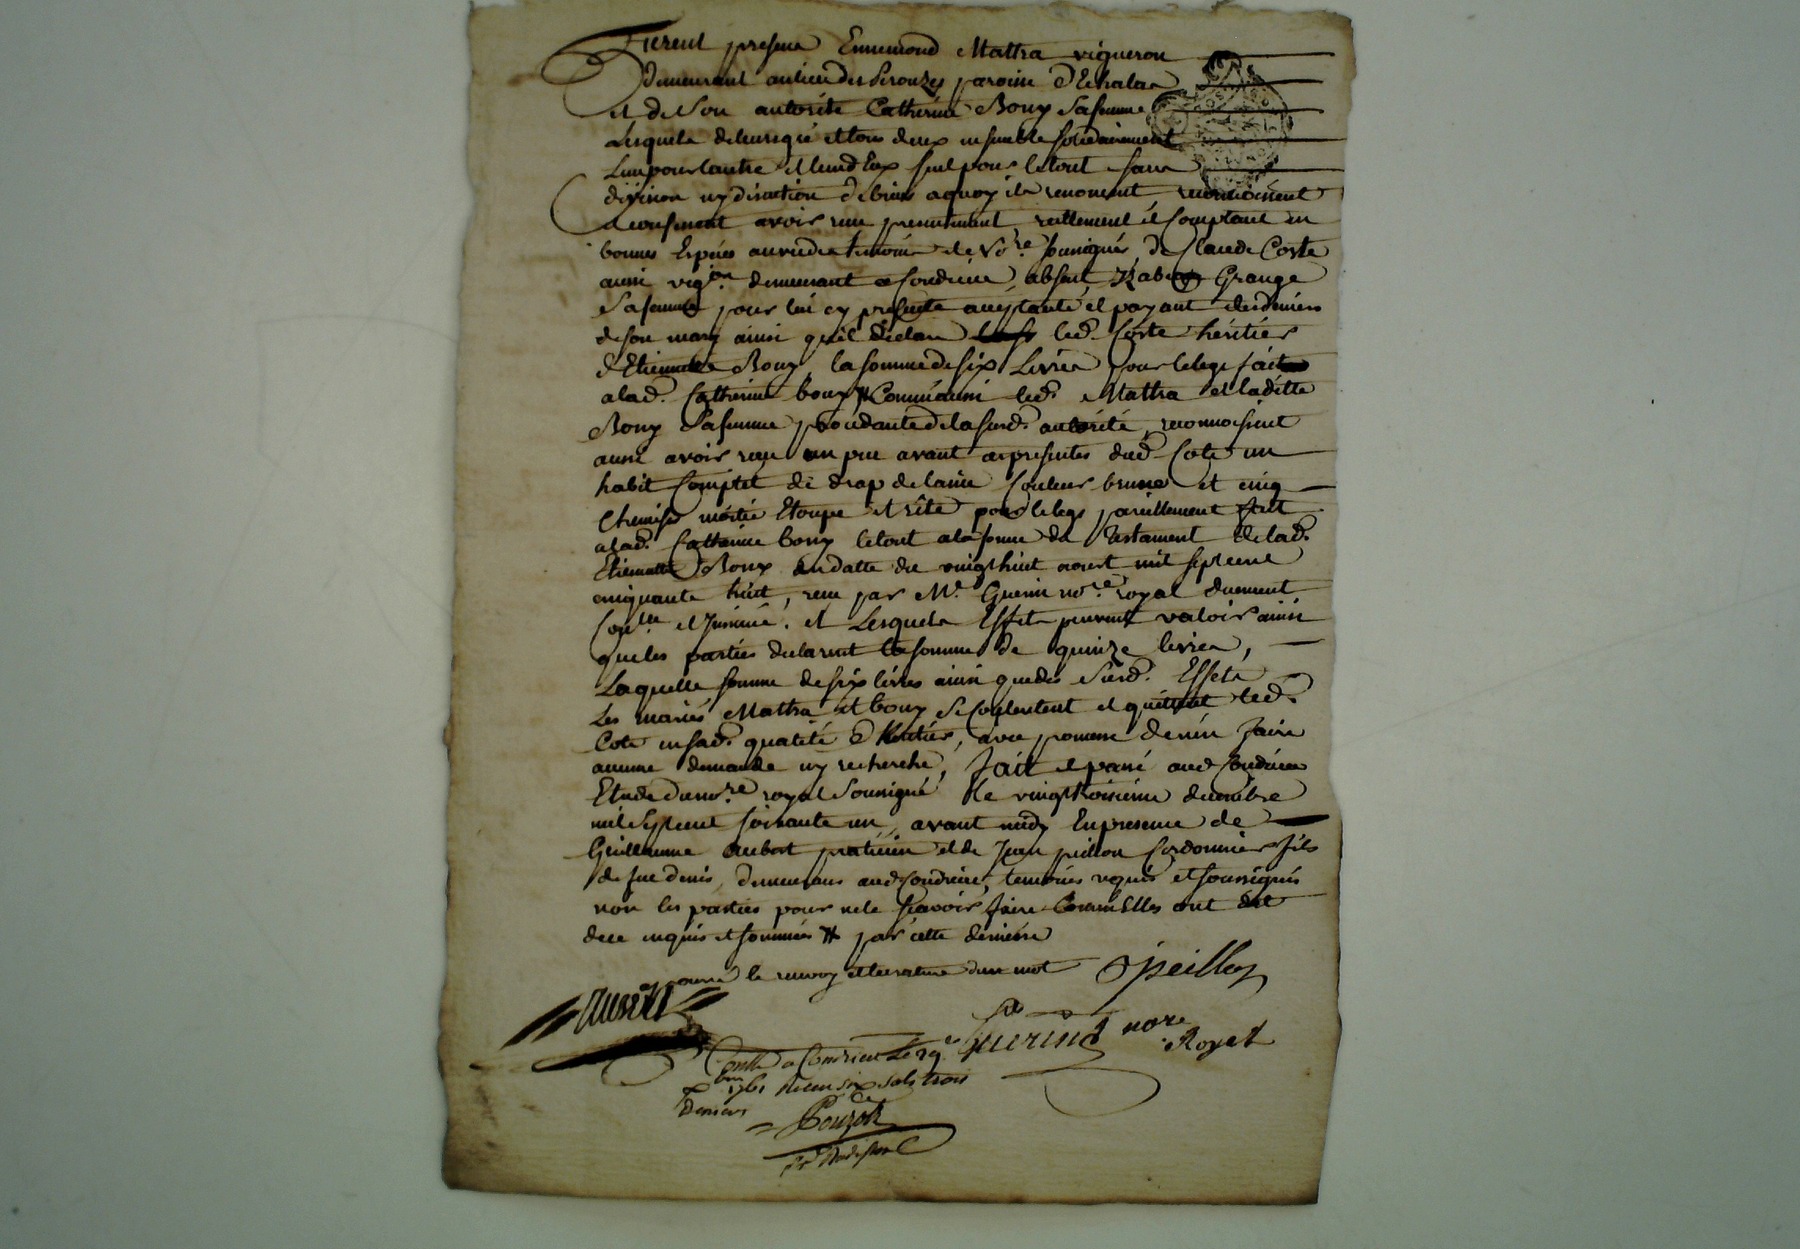 Furent presens Ennemond Mattra vigneron
demeurant au lieu des Perouzes paroisse d'Echalas
et de son autorité Catherine Bouy sa femme
Lesquels de leurs gré et tous deux ensemble solidairement
L'un pour l'autre et l'un d'Eux seul pour le tout sans
division ny discution de biens a quoy ils renoncent reconnoissent
et confessent avoir reçu presentement reellement et Comptant en
bonnes Espèces au vu des temoins et de No.re soussignés, de Claude Coste
aussi vig.on demeurant a Condrieu, absent, Grange
sa femme pour lui cy presente acceptante et payant des deniers
de son mary ainsi qu'il déclare led. Coste héritier
d'Etiennette Bouy, la somme de six Livres pour le legs fait
a lad. Catherine bouy # Comme aussi led. Mattra et laditte
Bouy sa femme procedante de la susd. autorité, reconnoissent
aussi avoir reçu un peu avant ces presentes dud. Cote un
habit Complet de drap de laine Couleur brune et cinq
Chemises moitié Etoupe et rite pour le legs pareillement fait
a lad. Catherine bouy le tout a la forme du Testament de lad.
Etiennette Bouy en datte du vingt huit aoust mil sept cent
cinquante huit, reçu par M.e Guerin no.re royal duement
Con.llé et Insinué. et Lesquels Effets peuvent valoir ainsi
que les parties declarent la somme de quinze livres,
Laquelle somme de six livres ainsi que des susd. Effets
Les mariés Mattra et bouy se Contentent et quittent led.
Cote en sad. qualité d'héritier, avec promesse de n'en faire
aucune demande ny recherche, fait et passé aud Condrieu
Etude du no.re royal soussigné le vingt troisieme decembre
mil sept cent soixante un, avant midy En presence de
Guillaume Aubert praticien et de Jean peillon Cordonnier fils
de feu denis, demeurans aud Condrieu, temoins requis et soussignés
non les parties pour ne le sçavoir faire Comm'Elles ont dit
de ce enquis et sommées # par cette derniere
approuvé le renvoy et la rature d'un mot Jpeillon
Guerin no.re
Royal
Conllé a Condrieu Le
1761 Reçu six sols trois
deniers